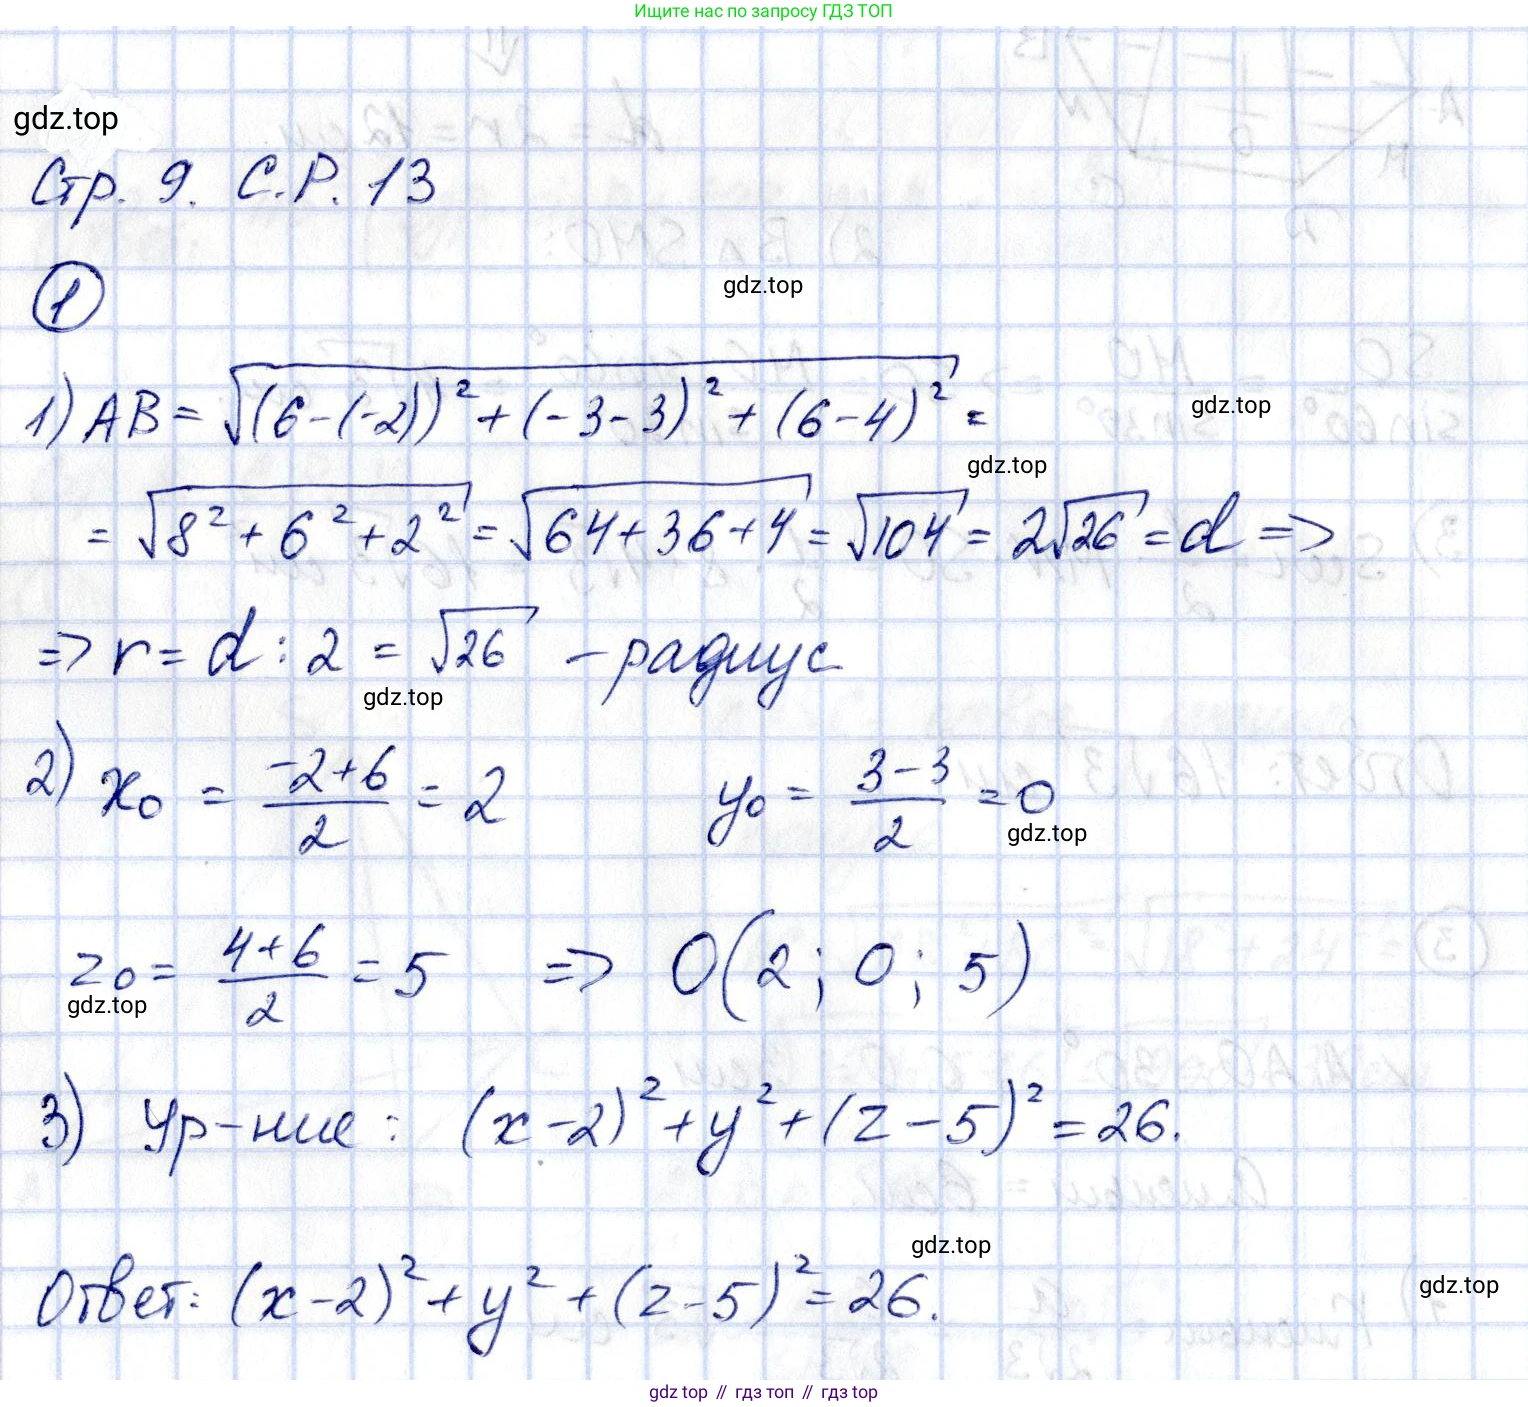 Ищите нас по запросу ГДЗ ТОП
gdz.top
Стр. 9. С.Р. 13
gdz.top
1
1) AB = √((6-(-2))² + (-3-3)² + (6-4)²) =
gdz.top
gdz.top
= √(8² + 6² + 2²) = √(64+36+4) = √104 = 2√26 = d =>
=> r = d : 2 = √26 - радиус
gdz.top
2) x₀ = (-2+6)/2 = 2 y₀ = (3-3)/2 = 0
gdz.top
z₀ = (4+6)/2 = 5 => O(2; 0; 5)
gdz.top
3) Ур-ние: (x-2)² + y² + (z-5)² = 26.
gdz.top
Ответ: (x-2)² + y² + (z-5)² = 26.
gdz.top
gdz.top // гдз топ // гдз top